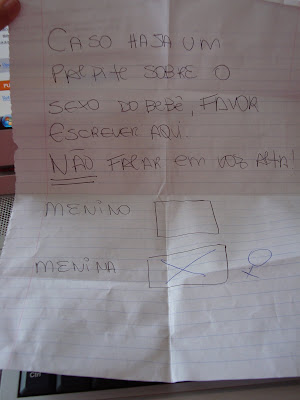 CASO HAJA UM
PALPITE SOBRE O
SEXO DO BEBÊ, FAVOR
ESCREVER AQUI.
NÃO FALAR EM VOZ ALTA!
MENINO
MENINA X ♀
Ctrl